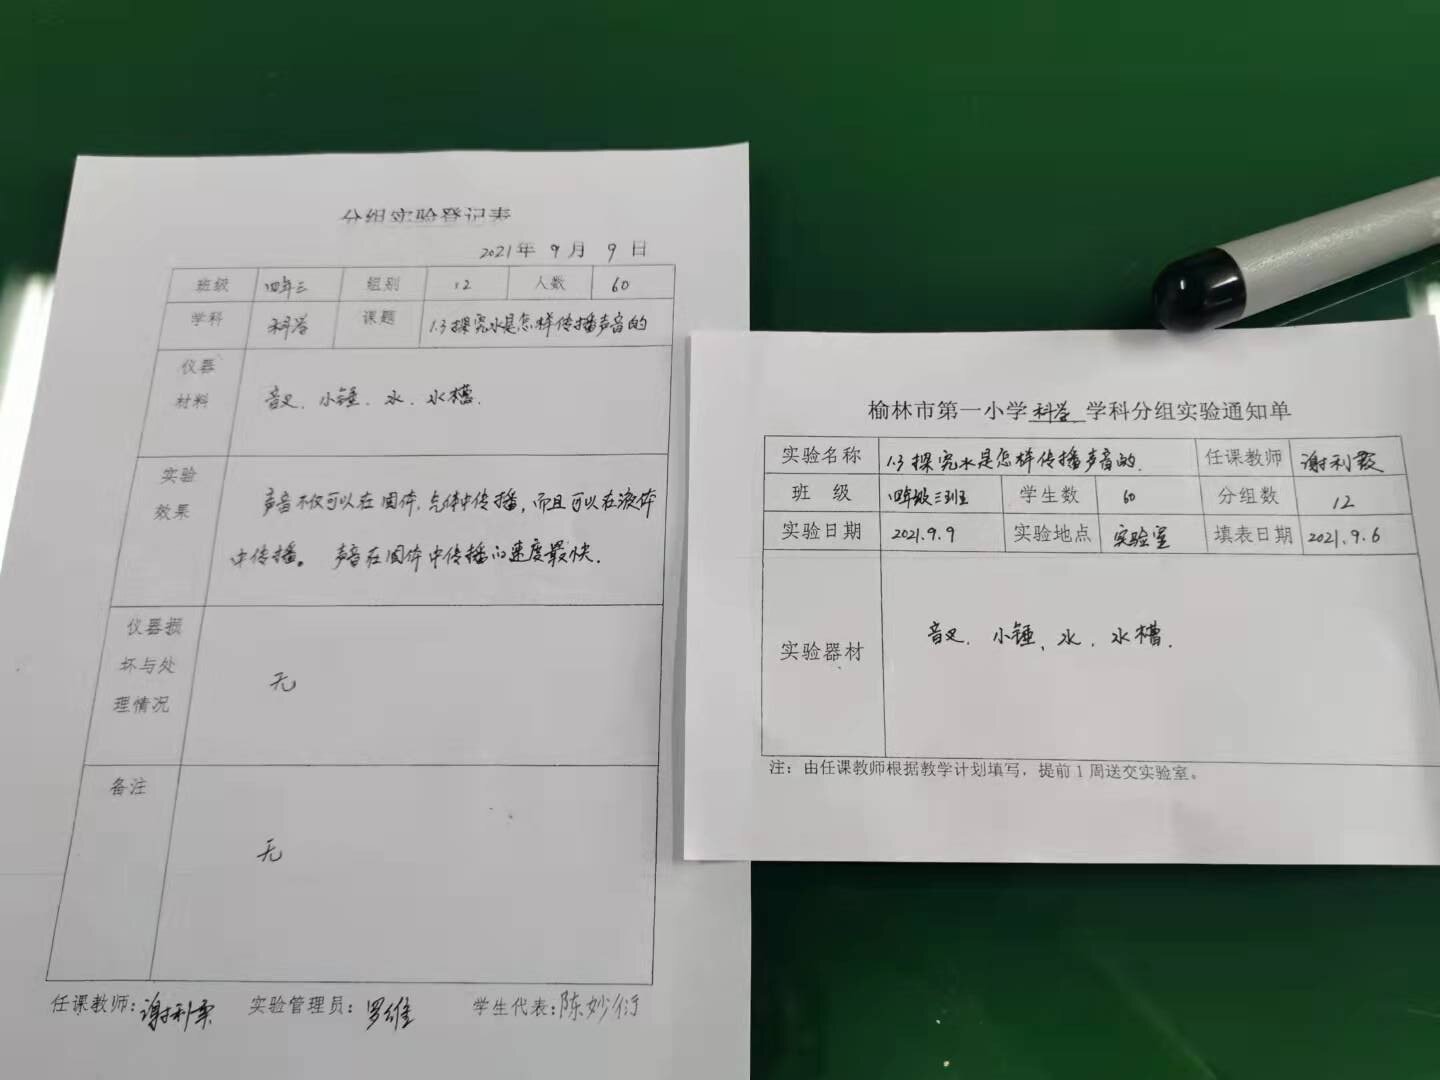 分组实验登记表
2021年 9月 9日
班级 四年三 组别 12 人数 60
学科 科学 课题 1.3探究水是怎样传播声音的
仪器
材料
音叉、小锤、水、水槽.
实验
效果
声音不仅可以在固体、气体中传播,而且可以在液体
中传播。声音在固体中传播的速度最快.
仪器损
坏与处
理情况
无
备注
无
任课教师: 谢利 实验管理员: 罗维 学生代表: 陈妙衍
榆林市第一小学科学学科分组实验通知单
实验名称 1.3探究水是怎样传播声音的. 任课教师 谢利
班 级 四年级三班 学生数 60 分组数 12
实验日期 2021.9.9 实验地点 实验室 填表日期 2021.9.6
实验器材 音叉、小锤、水、水槽.
注:由任课教师根据教学计划填写,提前1周送交实验室。